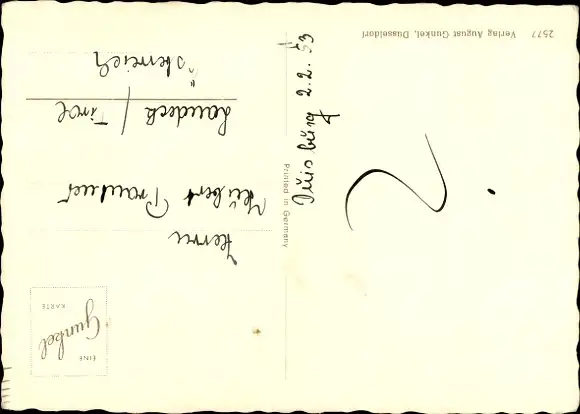 2577 Verlag August Gunkel, Düsseldorf
Duisburg 2.2.53
Printed in Germany
EINE
Gunkel
KARTE
Herrn
Hubert
Landeck / Tirol
Österreich